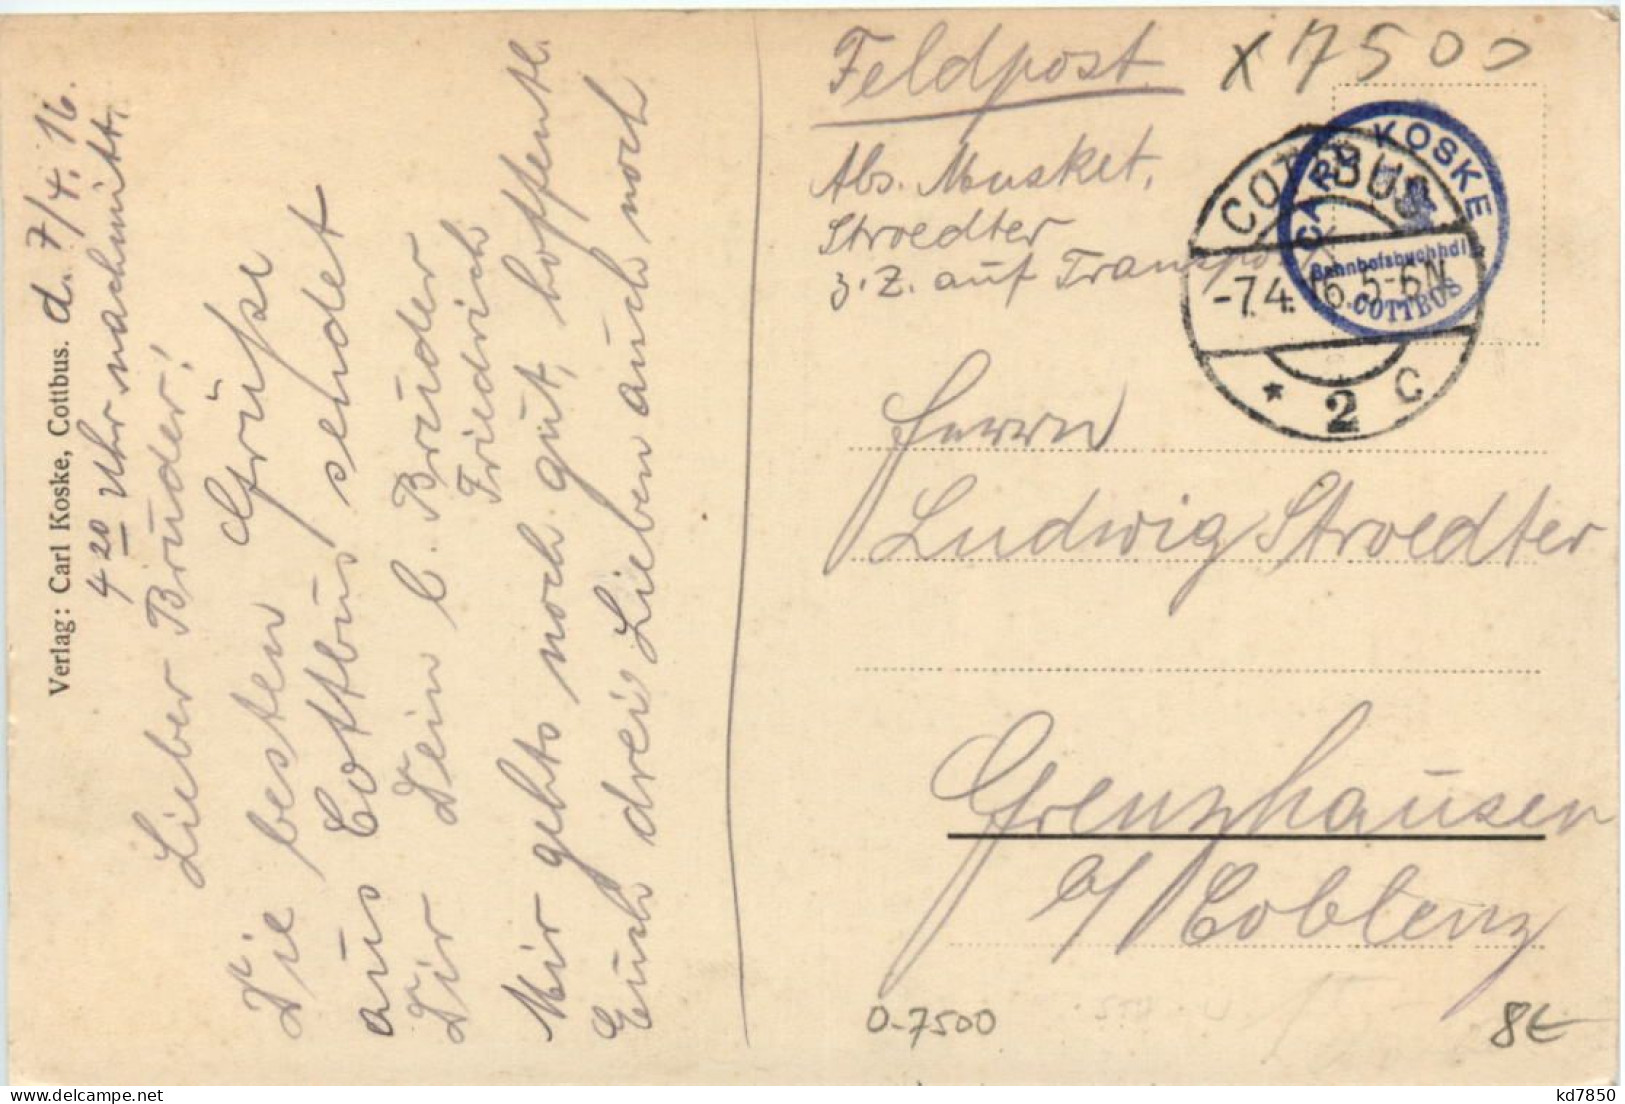 Verlag: Carl Koske, Cottbus.
d. 7/4. 16.
4 20 Uhr nachmitt.
Lieber Bruder!
Die besten Grüße
aus Cottbus sendet
Dir Dein l. Bruder
Friedrich
Mir gehts noch gut, hoffentl.
Euch drei Lieben auch noch
Feldpost
x 7500
Abs. Musket.
Stroedter
z. Z. auf Transport
COTTBUS
-7.4.16. 5-6N.
* 2 C
CARL KOSKE
Bahnhofsbuchhdl.
COTTBUS
Herrn
Ludwig Stroedter
Grenzhausen
b/ Coblenz
0-7500
8€
kd7850